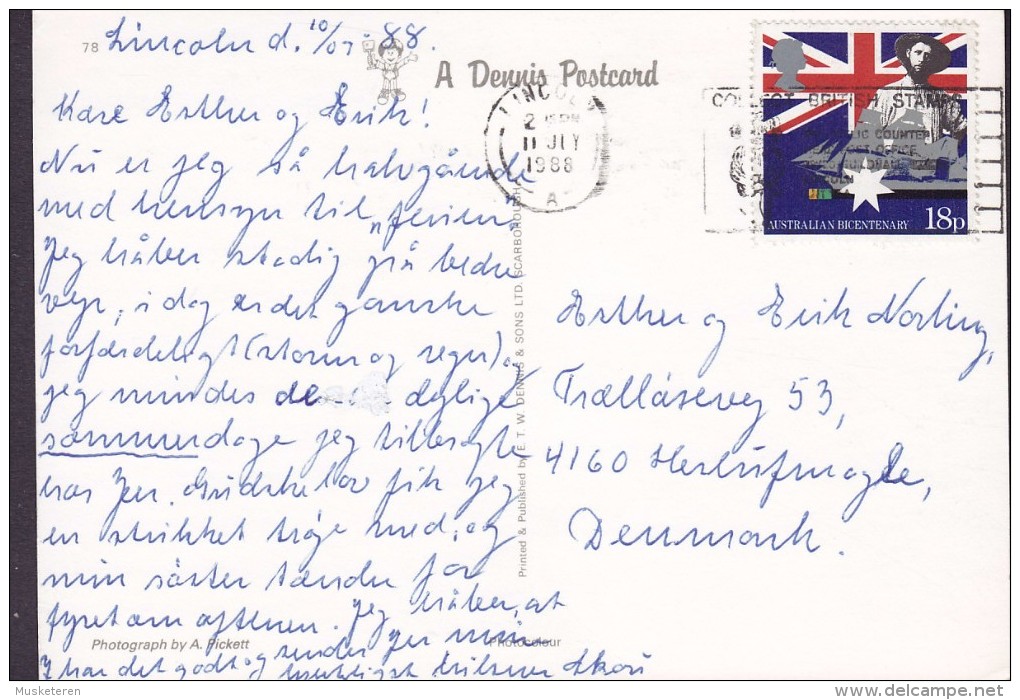 78
Lincoln d. 10/07-88.
A Dennis Postcard
Kære Esther og Erik!
Nu er jeg så halvgående
med hensyn til „ferien"
Jeg håber stadig på bedre
vejr, i dag er det ganske
forfærdeligt (storm og regn).
jeg mindes de dejlige
sommerdage jeg tilbragte
hos Jer. Gudskelov fik jeg
en strikket trøje med, og
min søster tænder for
fyret om aftenen. Jeg håber, at
I har det godt og sender jer min
hjerteligst hilsner
Photograph by A. Pickett
Photocolour
Printed & Published by E. T. W. DENNIS & SONS LTD. SCARBOROUGH
LINCOLN
11 JLY
1988
A
COLLECT BRITISH STAMPS
AUSTRALIAN BICENTENARY 18p
Esther og Erik Norling,
Trællåsevej 53,
4160 Herlufmagle,
Denmark.
© Musketeren
delcampe.net